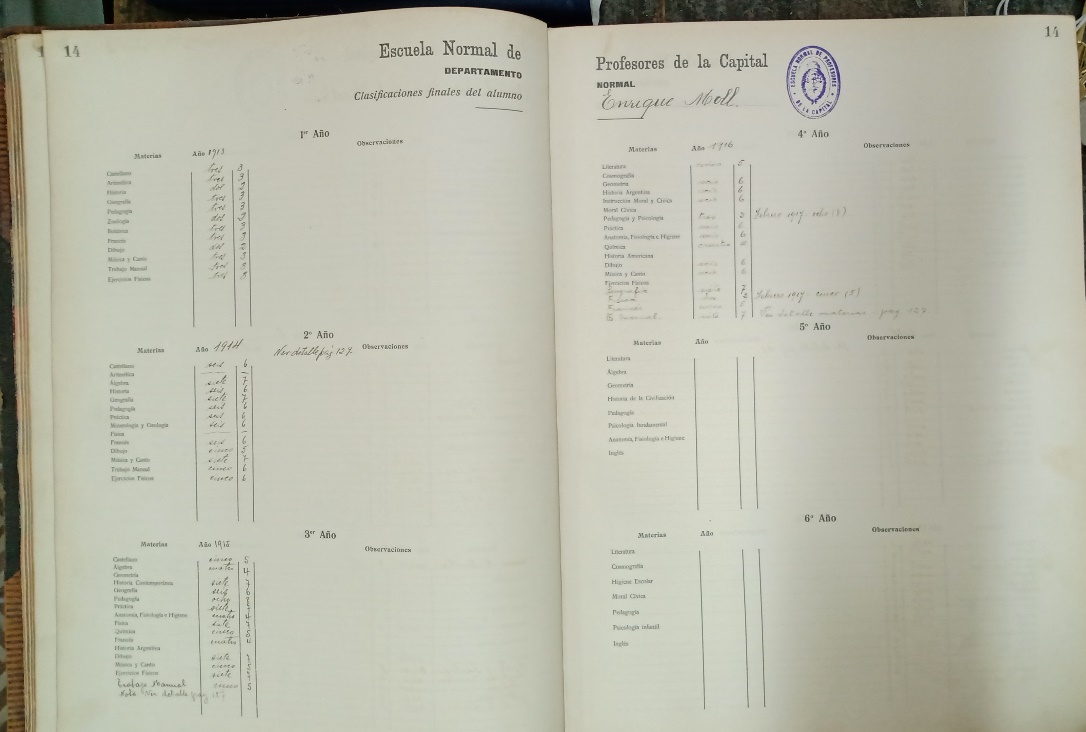 14
Escuela Normal de
DEPARTAMENTO
Clasificaciones finales del alumno
1er Año
Materias Año 1913 Observaciones
Castellano tres 3
Aritmética tres 3
Historia dos 2
Geografía tres 3
Pedagogía tres 3
Zoología dos 2
Botánica tres 3
Francés tres 3
Dibujo dos 2
Música y Canto tres 3
Trabajo Manual tres 3
Ejercicios Físicos tres 3
2º Año
Materias Año 1914 Ver detalle pág 127. Observaciones
Castellano seis 6
Aritmética
Álgebra siete 7
Historia seis 6
Geografía siete 7
Pedagogía seis 6
Práctica seis 6
Mineralogía y Geología seis 6
Física
Francés seis 6
Dibujo cinco 5
Música y Canto siete 7
Trabajo Manual cinco 6
Ejercicios Físicos cinco 6
3er Año
Materias Año 1915 Observaciones
Castellano cinco 5
Álgebra cuatro 4
Geometría
Historia Contemporánea siete 7
Geografía seis 6
Pedagogía
Práctica siete
Anatomía, Fisiología e Higiene cuatro 4
Física siete 7
Química cinco 5
Francés cuatro 4
Historia Argentina
Dibujo siete
Música y Canto cinco
Ejercicios Físicos siete
Trabajo Manual cinco 5
Nota: Ver detalle pag 127
14
Profesores de la Capital
NORMAL
ESCUELA NORMAL DE PROFESORES DE LA CAPITAL
Enrique Moll.
4º Año
Materias Año 1916 Observaciones
Literatura cinco 5
Cosmografía
Geometría seis 6
Historia Argentina seis 6
Instrucción Moral y Cívica seis 6
Moral Cívica
Pedagogía y Psicología tres 3 Febrero 1917
Práctica seis 6
Anatomía, Fisiología e Higiene seis 6
Química cuatro 4
Historia Americana
Dibujo seis 6
Música y Canto seis 6
Ejercicios Físicos
Geografía siete 7
Física dos 2 Febrero 1917 cinco (5)
Francés cinco 5
T. Manual siete 7 Ver detalle materias pag 127
5º Año
Materias Año Observaciones
Literatura
Álgebra
Geometría
Historia de la Civilización
Pedagogía
Psicología fundamental
Anatomía, Fisiología e Higiene
Inglés
6º Año
Materias Año Observaciones
Literatura
Cosmografía
Higiene Escolar
Moral Cívica
Pedagogía
Psicología infantil
Inglés